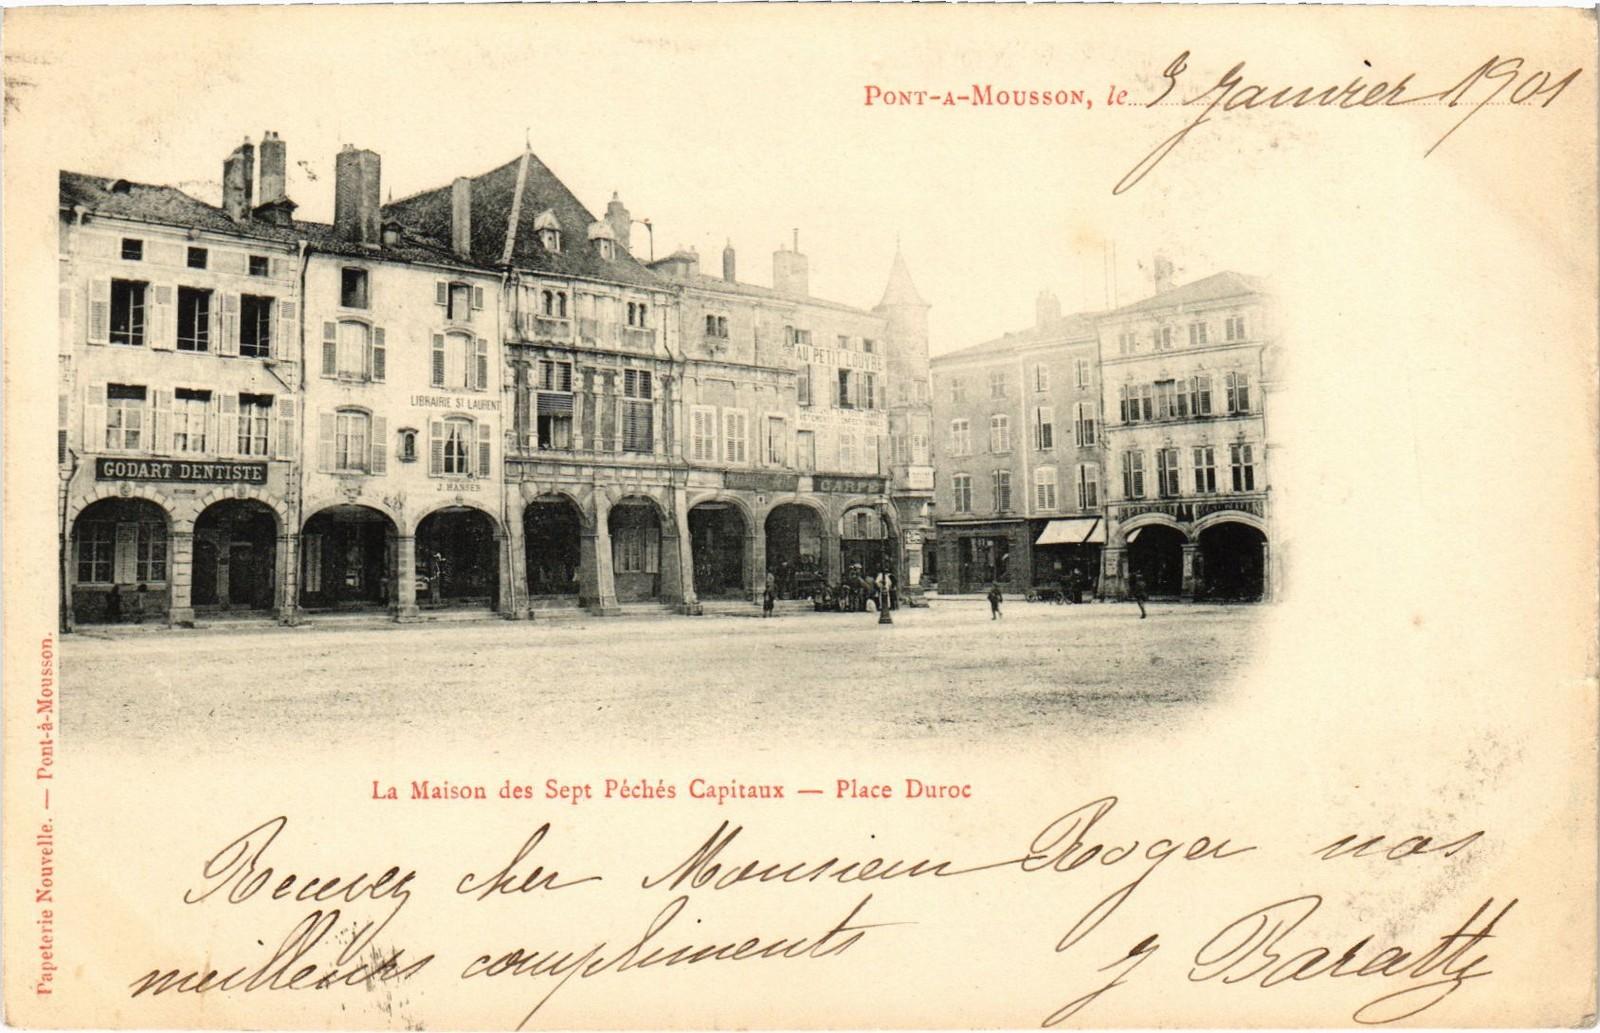 PONT-A-MOUSSON, le 3 Janvier 1901
GODART DENTISTE
LIBRAIRIE ST LAURENT
J. HANSER
AU PETIT LOUVRE
CARPE
La Maison des Sept Péchés Capitaux — Place Duroc
Papeterie Nouvelle. — Pont-à-Mousson.
Recevez cher Monsieur Roger nos
meilleurs compliments